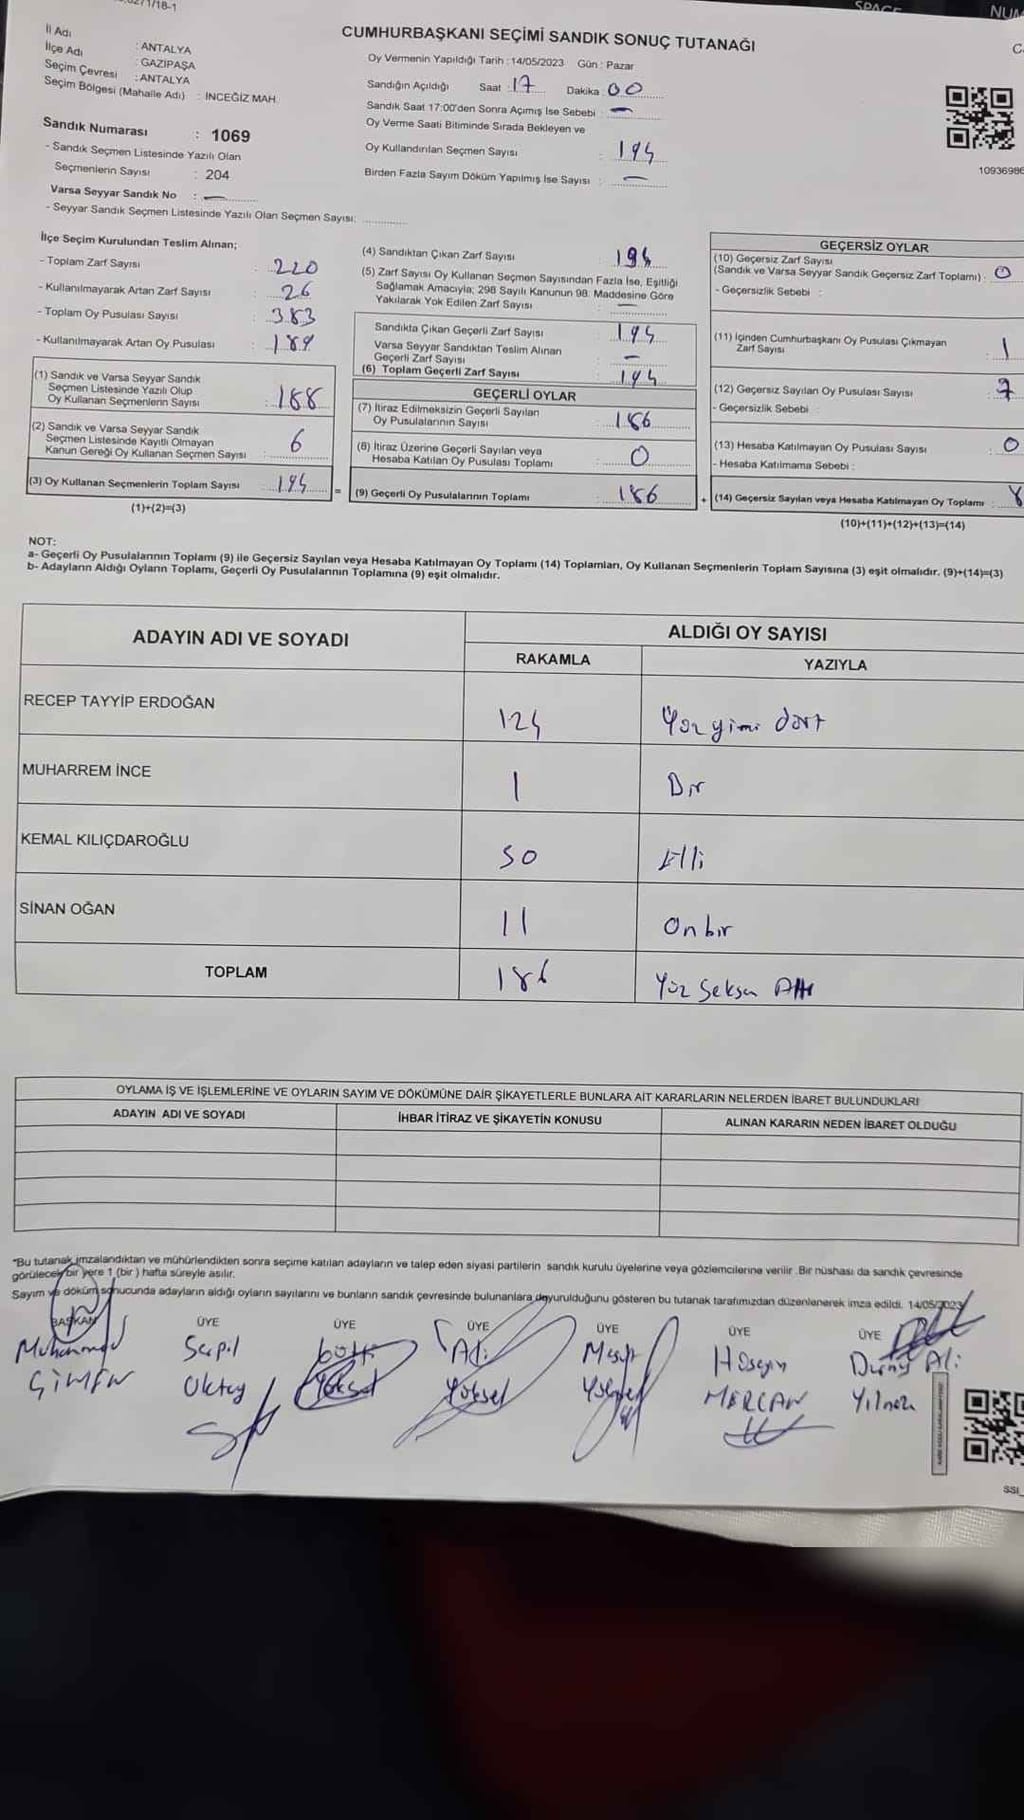 271/18-1
SPACE
NUM
CUMHURBAŞKANI SEÇİMİ SANDIK SONUÇ TUTANAĞI
İl Adı : ANTALYA
İlçe Adı : GAZİPAŞA
Seçim Çevresi : ANTALYA
Seçim Bölgesi (Mahalle Adı) : İNCEĞİZ MAH.
Sandık Numarası : 1069
- Sandık Seçmen Listesinde Yazılı Olan
Seçmenlerin Sayısı : 204
Varsa Seyyar Sandık No : —
- Seyyar Sandık Seçmen Listesinde Yazılı Olan Seçmen Sayısı:
Oy Vermenin Yapıldığı Tarih : 14/05/2023 Gün : Pazar
Sandığın Açıldığı Saat : 17 Dakika : 00
Sandık Saat 17:00'den Sonra Açımış İse Sebebi : —
Oy Verme Saati Bitiminde Sırada Bekleyen ve
Oy Kullandırılan Seçmen Sayısı : 194
Birden Fazla Sayım Döküm Yapılmış İse Sayısı : —
10936986
İlçe Seçim Kurulundan Teslim Alınan;
- Toplam Zarf Sayısı : 220
- Kullanılmayarak Artan Zarf Sayısı : 26
- Toplam Oy Pusulası Sayısı : 383
- Kullanılmayarak Artan Oy Pusulası : 189
(1) Sandık ve Varsa Seyyar Sandık
Seçmen Listesinde Yazılı Olup
Oy Kullanan Seçmenlerin Sayısı : 188
(2) Sandık ve Varsa Seyyar Sandık
Seçmen Listesinde Kayıtlı Olmayan
Kanun Gereği Oy Kullanan Seçmen Sayısı : 6
(3) Oy Kullanan Seçmenlerin Toplam Sayısı : 194
(1)+(2)=(3)
(4) Sandıktan Çıkan Zarf Sayısı : 194
(5) Zarf Sayısı Oy Kullanan Seçmen Sayısından Fazla İse, Eşitliği
Sağlamak Amacıyla; 298 Sayılı Kanunun 98. Maddesine Göre
Yakılarak Yok Edilen Zarf Sayısı : —
Sandıkta Çıkan Geçerli Zarf Sayısı : 194
Varsa Seyyar Sandıktan Teslim Alınan
Geçerli Zarf Sayısı : —
(6) Toplam Geçerli Zarf Sayısı : 194
GEÇERLİ OYLAR
(7) İtiraz Edilmeksizin Geçerli Sayılan
Oy Pusulalarının Sayısı : 186
(8) İtiraz Üzerine Geçerli Sayılan veya
Hesaba Katılan Oy Pusulası Toplamı : 0
(9) Geçerli Oy Pusulalarının Toplamı : 186
GEÇERSİZ OYLAR
(10) Geçersiz Zarf Sayısı
(Sandık ve Varsa Seyyar Sandık Geçersiz Zarf Toplamı) : 0
- Geçersizlik Sebebi :
(11) İçinden Cumhurbaşkanı Oy Pusulası Çıkmayan
Zarf Sayısı : 1
(12) Geçersiz Sayılan Oy Pusulası Sayısı : 7
- Geçersizlik Sebebi :
(13) Hesaba Katılmayan Oy Pusulası Sayısı : 0
- Hesaba Katılmama Sebebi :
(14) Geçersiz Sayılan veya Hesaba Katılmayan Oy Toplamı : 8
(10)+(11)+(12)+(13)=(14)
NOT:
a- Geçerli Oy Pusulalarının Toplamı (9) ile Geçersiz Sayılan veya Hesaba Katılmayan Oy Toplamı (14) Toplamları, Oy Kullanan Seçmenlerin Toplam Sayısına (3) eşit olmalıdır. (9)+(14)=(3)
b- Adayların Aldığı Oyların Toplamı, Geçerli Oy Pusulalarının Toplamına (9) eşit olmalıdır.
ADAYIN ADI VE SOYADI
ALDIĞI OY SAYISI
RAKAMLA YAZIYLA
RECEP TAYYİP ERDOĞAN 124 Yüz yirmi dört
MUHARREM İNCE 1 Bir
KEMAL KILIÇDAROĞLU 50 Elli
SİNAN OĞAN 11 On bir
TOPLAM 186 Yüz Seksen Altı
OYLAMA İŞ VE İŞLEMLERİNE VE OYLARIN SAYIM VE DÖKÜMÜNE DAİR ŞİKAYETLERLE BUNLARA AİT KARARLARIN NELERDEN İBARET BULUNDUKLARI
ADAYIN ADI VE SOYADI İHBAR İTİRAZ VE ŞİKAYETİN KONUSU ALINAN KARARIN NEDEN İBARET OLDUĞU
*Bu tutanak imzalandıktan ve mühürlendikten sonra seçime katılan adayların ve talep eden siyasi partilerin sandık kurulu üyelerine veya gözlemcilerine verilir. Bir nüshası da sandık çevresinde
görülecek bir yere 1 (bir) hafta süreyle asılır.
Sayım ve döküm sonucunda adayların aldığı oyların sayılarını ve bunların sandık çevresinde bulunanlara duyurulduğunu gösteren bu tutanak tarafımızdan düzenlenerek imza edildi. 14/05/2023
BAŞKAN ÜYE ÜYE ÜYE ÜYE ÜYE ÜYE
Muhammed Serpil Lütfi Ali Mesut Hüseyin Durmuş Ali
ÇİMEN Oktay Yüksel Yüksel MERCAN Yılmaz
SSI_